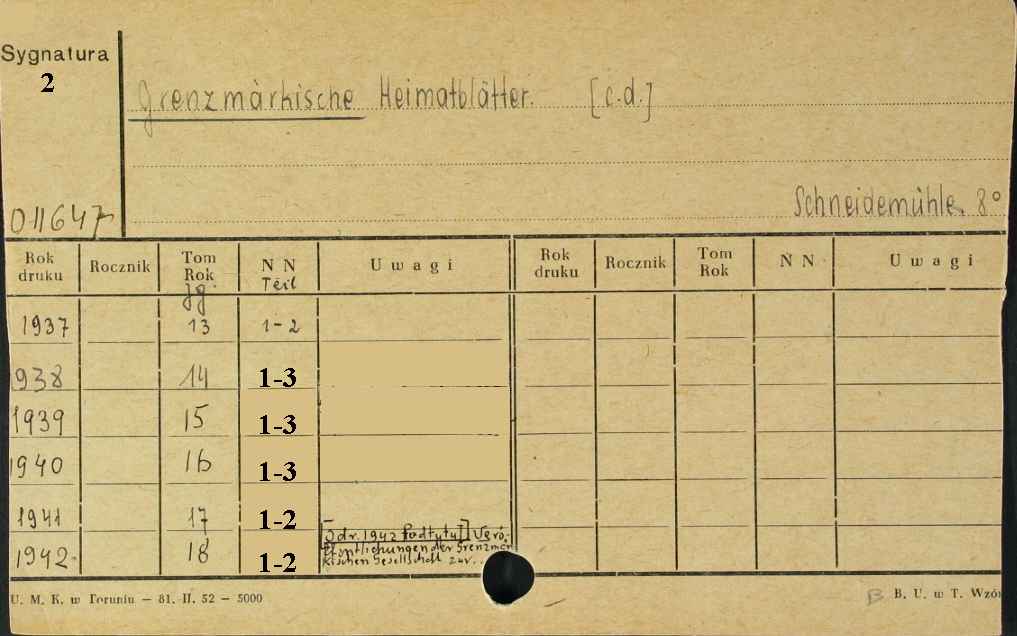 Sygnatura
2
Grenzmärkische Heimatblätter. [c.d.]
Schneidemühle. 8°
011647
Rok druku Rocznik Tom Rok NN Uwagi Rok druku Rocznik Tom Rok NN Uwagi
Jg. Teil
1937 13 1-2
1938 14 1-3
1939 15 1-3
1940 16 1-3
1941 17 1-2
1942 18 1-2
[Odr. 1942 Podtytuł] Verö-
ffentlichungen der Grenzmär
kischen Gesellschaft zur...
U. M. K. w Toruniu — 81. II. 52 — 5000
B. U. w T. Wzór